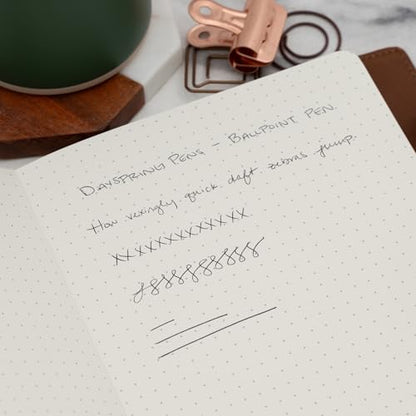 DAYSPRING PENS – BALLPOINT PEN.
How vexingly quick daft zebras jump.
XXXXXXXXXXXX